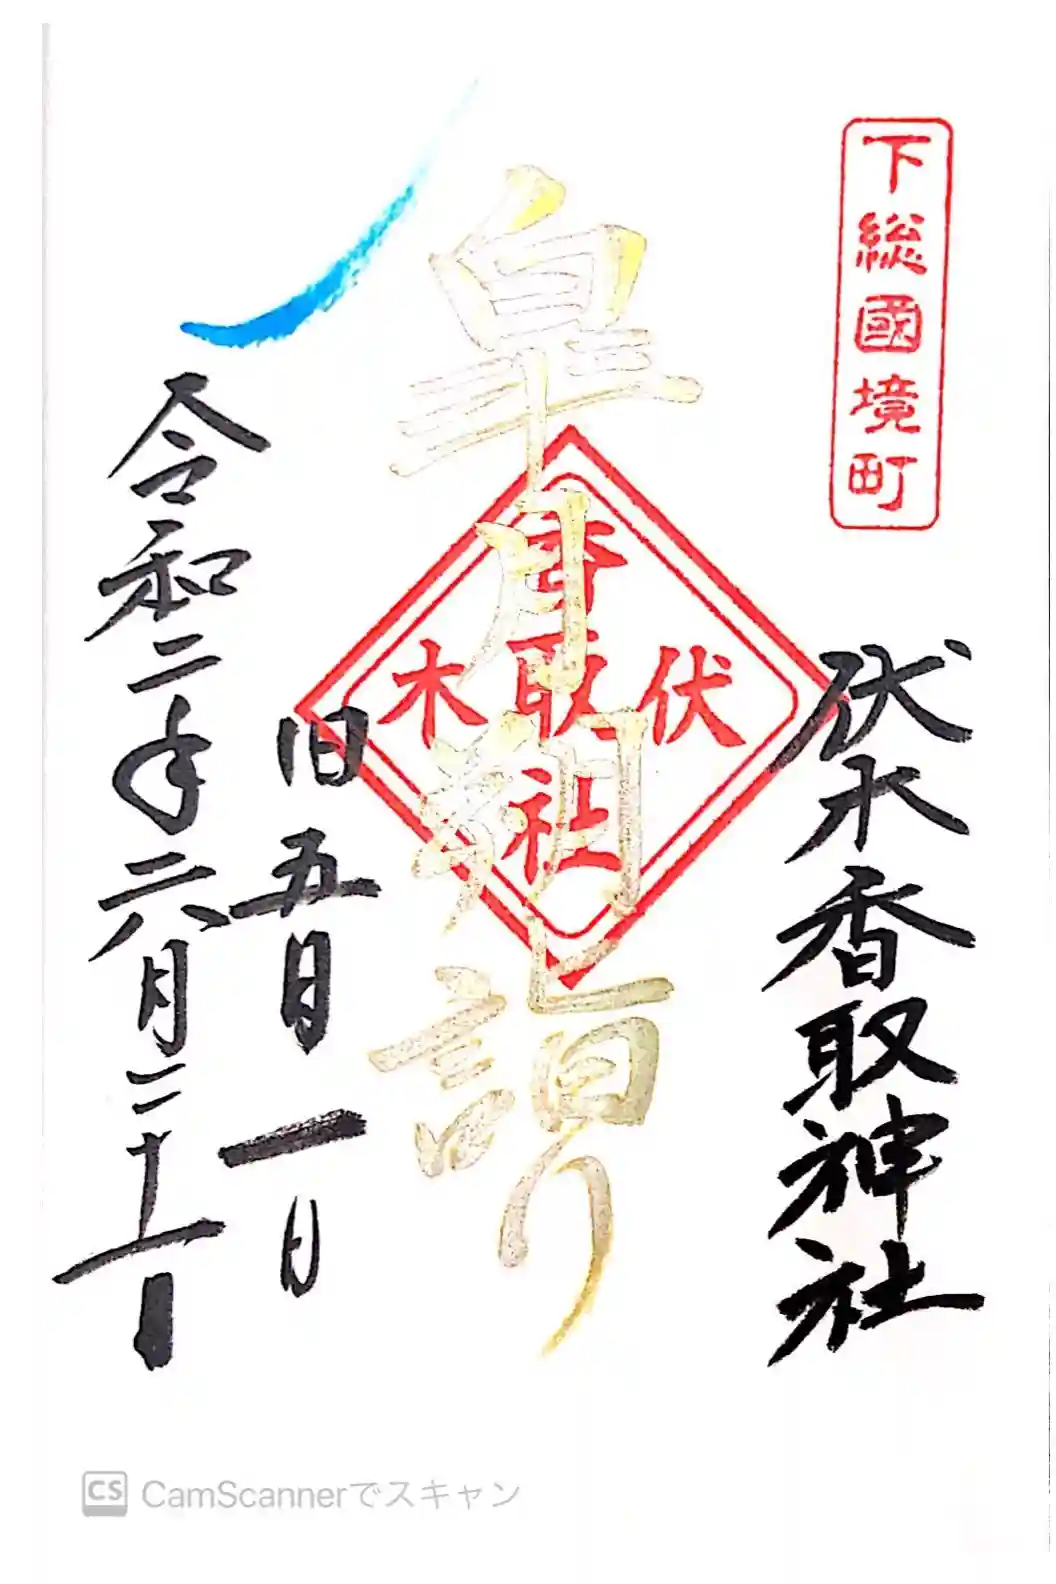 下総國境町
伏木香取神社
伏木
香取社
皐月朔詣り
旧五月一日
令和二年六月二十一日
CS CamScannerでスキャン